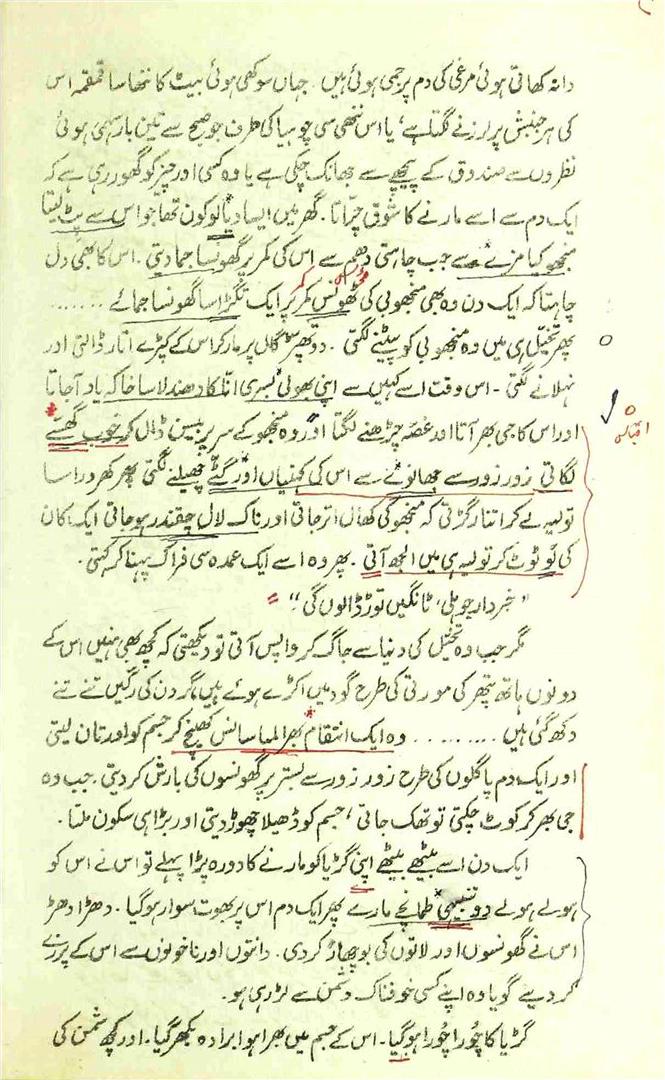 دانہ کھاتی ہوئی مرغی کی دم پر جمی ہوئی ہیں۔ جہاں سوکھی ہوئی بیٹ کا ننھا سا قمقمہ اس
کی ہر جنبش پر لرزنے لگتا ہے‘ یا اس ننھی سی چوہیا کی طرف جو صبح سے تین بار سہمی ہوئی
نظروں سے صندوق کے پیچھے سے جھانک چکی ہے یا وہ کسی اور چیز کو گھور رہی ہے کہ
ایک دم سے اسے مارنے کا شوق چرّاتا۔ گھر میں ایسا دبیلو کون تھا جو اس سے پٹ لیتا
منجھو کیا مزے سے جب چاہتی دھم سے اس کی کمر پر گھونسا جما دیتی۔ اس کا بھی دل
چاہتا کہ ایک دن وہ بھی منجھو بی کی ٹھونس کمر پر ایک تگڑا سا گھونسا جمائے .......
پھر تخیّل ہی میں وہ منجھو بی کو پیٹنے لگتی۔ دو تھپڑ گال پر مار کر اس کے کپڑے اتار ڈالتی اور
نہلانے لگتی۔ اس وقت اسے کہیں سے اپنی بھولی بسری انّا کا دھندلا سا خاکہ یاد آ جاتا
اور اس کا جی بھر آتا اور غصّہ چڑھنے لگتا اور وہ منجھو کے سر پر بیسن ڈال کر خوب گھسّے
لگاتی زور زور سے جھانوے سے اس کی کہنیاں اور گٹّے چھیلنے لگتی پھر کھردرا سا
تولیہ لے کر اتنا رگڑتی کہ منجھو کی کھال اتر جاتی اور ناک لال چقندر ہو جاتی ایک کان
کی لَو ٹوٹ کر تولیہ ہی میں الجھ آتی۔ پھر وہ اسے ایک عمدہ سی فراک پہنا کر کہتی۔
”خبردار جو ہلی، ٹانگیں توڑ ڈالوں گی“
مگر جب وہ تخیّل کی دنیا سے جاگ کر واپس آتی تو دیکھتی کہ کچھ بھی نہیں اس کے
دونوں ہاتھ پتھر کی مورتی کی طرح گود میں اکڑے ہوئے ہیں مگر دن کی رگیں تنے تنے
دکھ گئی ہیں ......... وہ ایک انتقام بھرا لمبا سانس کھینچ کر جسم کو اور تان لیتی
اور ایک دم پاگلوں کی طرح زور زور سے بستر پر گھونسوں کی بارش کر دیتی۔ جب وہ
جی بھر کر کوٹ چکتی تو تھک جاتی‘ جسم کو ڈھیلا چھوڑ دیتی اور بڑا ہی سکون ملتا۔
ایک دن اسے بیٹھے بیٹھے اپنی گڑیا کو مارنے کا دورہ پڑا پہلے تو اس نے اس کو
ہولے ہولے دو تنبیہی طمانچے مارے پھر ایک دم اس پر بھوت سوار ہو گیا۔ دھڑا دھڑ
اس نے گھونسوں اور لاتوں کی بوچھاڑ کر دی۔ دانتوں اور ناخونوں سے اس کے پرزے
کر دیے گویا وہ اپنے کسی خوفناک دشمن سے لڑ رہی ہو۔
گڑیا کا چُورا چُورا ہو گیا۔ اس کے جسم میں بھرا ہوا برادہ بکھر گیا۔ اور کچھ شمن کی